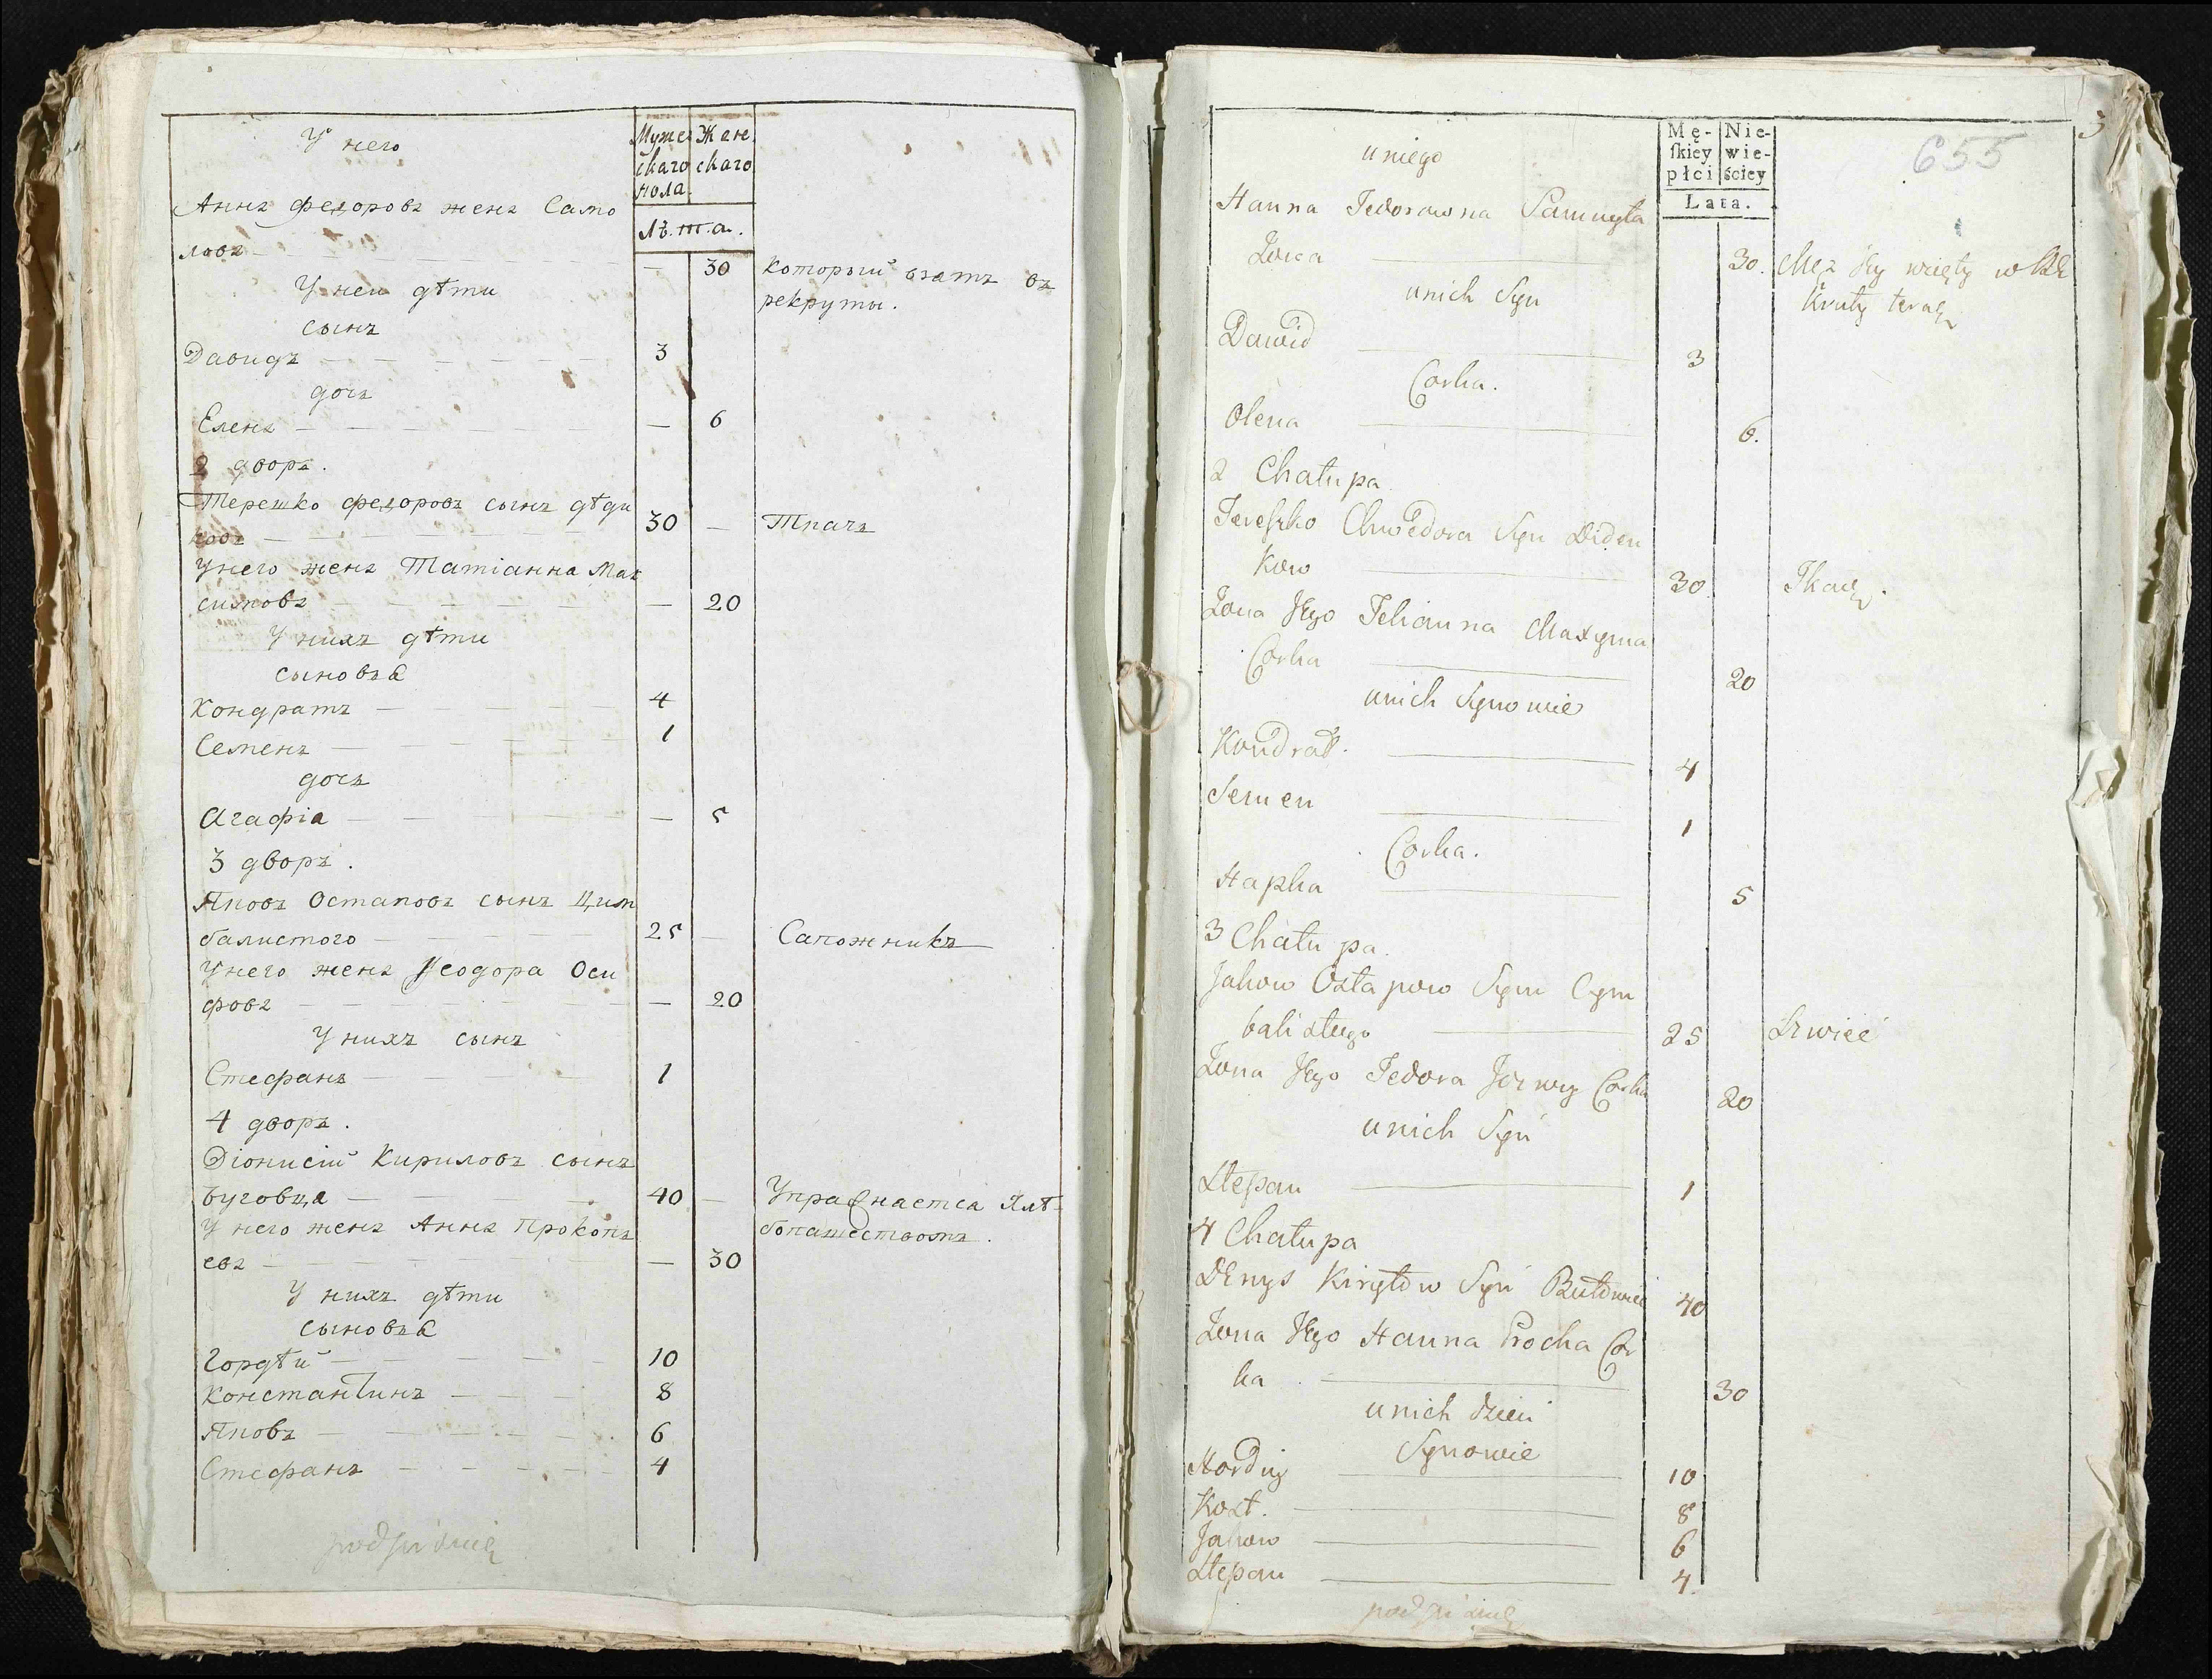 У него
Мужес Жане
скаго скаго
пола.
Лѣта.
Анна федорова жена Само
лова — 30 который взятъ въ
рекруты.
У неи дѣти
сынъ
Давидъ — 3
дочь
Елена — — 6
2 дворъ.
Терешко федоровъ сынъ дѣди
ковъ — 30 — Ткачъ
У него жена Татіанна Мак
симова — — 20
У нихъ дѣти
сыновья
Кондратъ — 4
Семенъ — 1
дочь
Агафіа — — 5
3 дворъ.
Яковъ Остаповъ сынъ Цим
балистого — 25 — Сапожникъ
У него жена Феодора Оси
фова — — 20
У нихъ сынъ
Стефанъ — 1
4 дворъ.
Діонисій Кириловъ сынъ
Буговца — 40 — Упражнается хлѣ-
У него жена Анна Прокопъ бопашествомъ.
ева — — 30
У нихъ дѣти
сыновья
Гордѣй — 10
Константинъ — 8
Яковъ — 6
Стефанъ — 4
655
3
Mę- Nie-
ſkiey wie-
płci ściey
Lata.
u niego
Hanna Fedorowna
Żona — 30. Mąż Jey wzięty w Re
kruty teraz
u nich Syn
Dawid — 3
Corka.
Olena — 6.
2 Chatupa
Tereszko Chwedora Syn Diden
kow — 30 Tkacz.
Żona Jego Tetianna Maxyma
Corka — 20
u nich Synowie
Kondrat. — 4
Semen — 1
Corka.
Hapka — 5
3 Chatupa.
Jakow Ostapow Syn Cym
balistego — 25 Szwiec
Żona Jego Fedora Corka 20
u nich Syn
Stepan — 1
4 Chatupa
Denys Kiryłow Syn 40
Żona Jego Hanna Procka Cor
ka — 30
u nich dzieci
Synowie
Hordiy — 10
Kost. — 8
Jakow — 6
Stepan — 4.